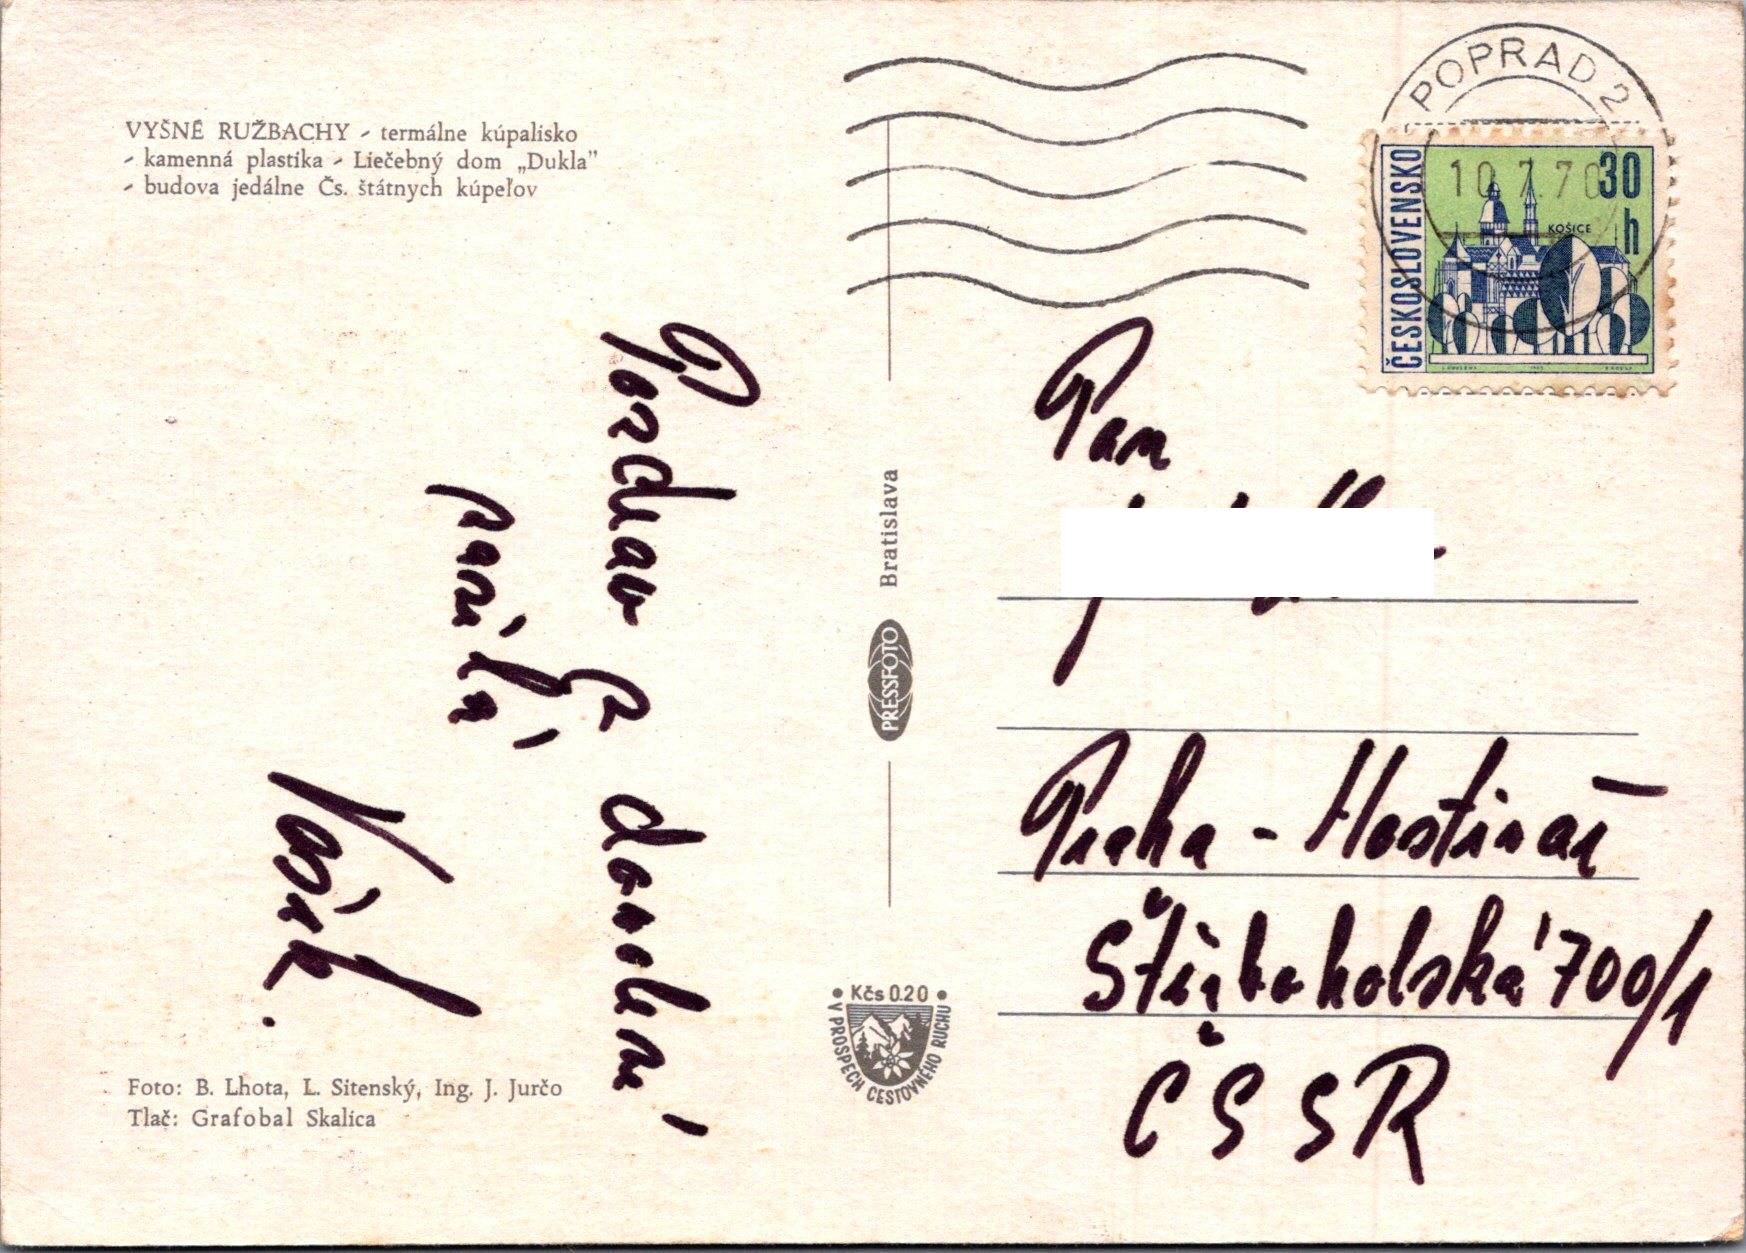 VYŠNÉ RUŽBACHY - termálne kúpalisko
- kamenná plastika - Liečebný dom „Dukla”
- budova jedálne Čs. štátnych kúpeľov
Pozdrav
posílá
Foto: B. Lhota, L. Sitenský, Ing. J. Jurčo
Tlač: Grafobal Skalica
PRESSFOTO Bratislava
• Kčs 0.20 •
V PROSPECH CESTOVNÉHO RUCHU
POPRAD 2
10.7.70
ČESKOSLOVENSKO
30
h
KOŠICE
Pan
Praha - Hostivař
Štěrboholská 700/1
ČSSR